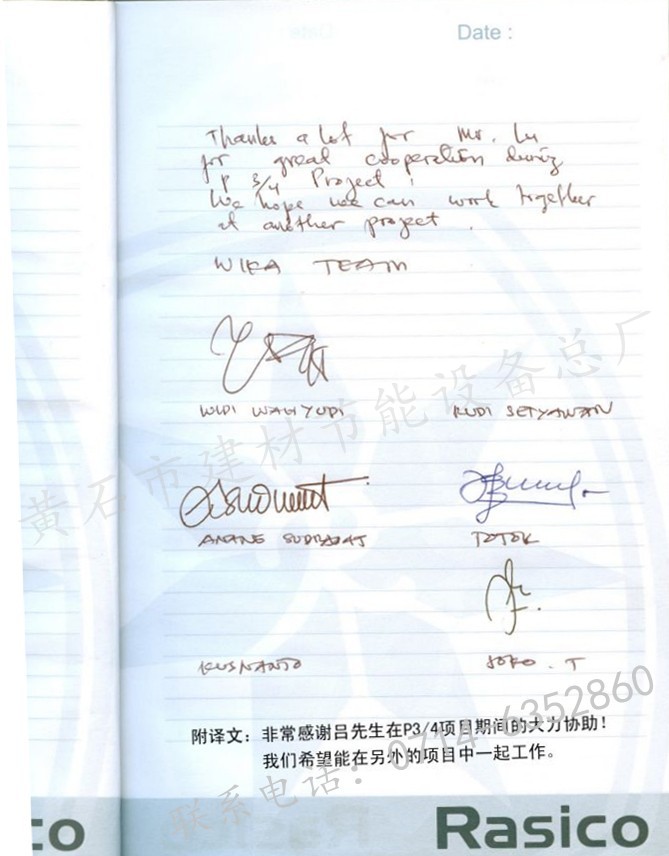 Date :
Thanks a lot for Mr. Lu
for great cooperation during
P 3/4 Project !
We hope we can work together
at another project .
WIKA TEAM
WIDI WAHYUDI RUDI SETYAWAN
ANANG SUDRAJAT TOTOK
KUSNANTO JOKO . T
附译文：非常感谢吕先生在P3/4项目期间的大力协助！
我们希望能在另外的项目中一起工作。
黄石市建材节能设备总厂
联系电话：0714-6352860
co Rasico